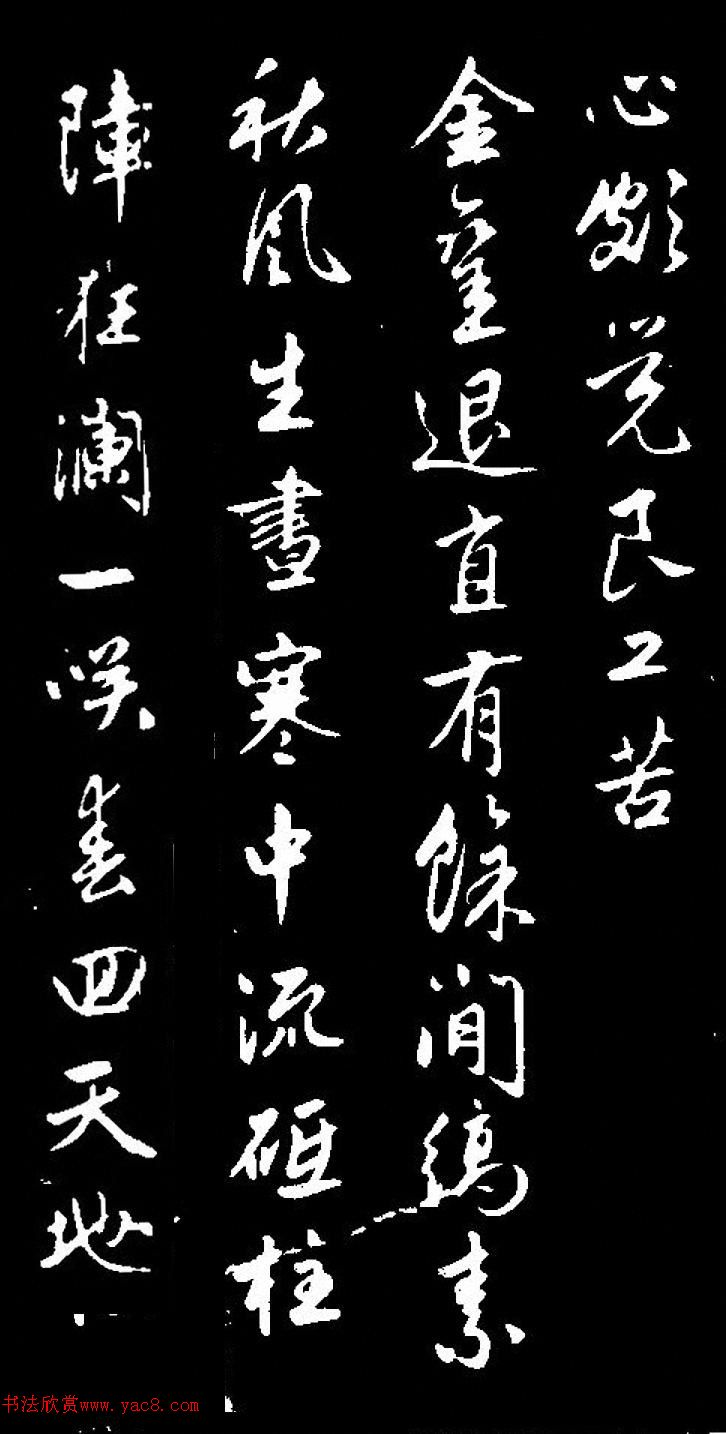 心頗覺良工苦
金鑾退直有餘閒縞素
秋風生晝寒中流砥柱
障狂瀾一咲春回天地
书法欣赏www.yac8.com